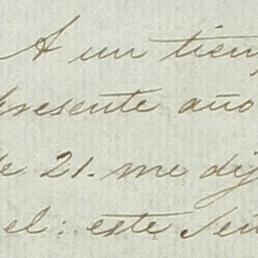 A un tiem
presente año
de 21. me dij
el: este Señ